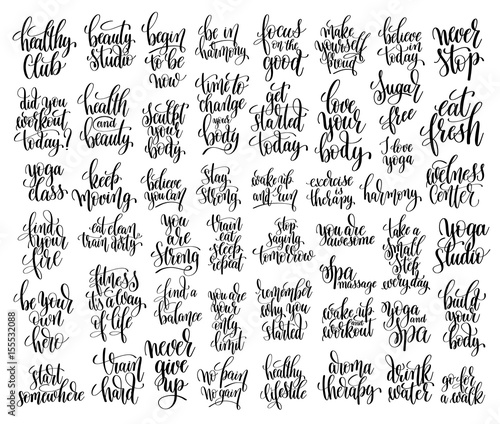 healthy
Club
beauty
studio
begin
to be
now
be in
harmony
focus
on the
good
make
yourself
proud
believe
in today
never
stop
did you
workout
today?
health
and
beauty
sculpt
your
body
time to
change
your
body
get
started
today
love
your
body
Sugar
free
I love
yoga
eat
fresh
yoga
class
keep
moving
believe
you can
stay
strong
wake up
and run
exercise
is
therapy
harmony
wellness
center
find
your
fire
eat clean
train dirty
you
are
strong
train
eat
sleep
repeat
stop
saying
tomorrow
you are
awesome
take a
small
step
everyday
yoga
studio
be your
own
hero
fitness
it's a way
of life
find a
balance
you are
your
only
limit
remember
why you
started
spa
massage
wake up
and
workout
yoga
and
spa
build
your
body
start
somewhere
train
hard
never
give
up
no pain
no gain
healthy
lifestile
aroma
therapy
drink
water
go for
a walk
155532088